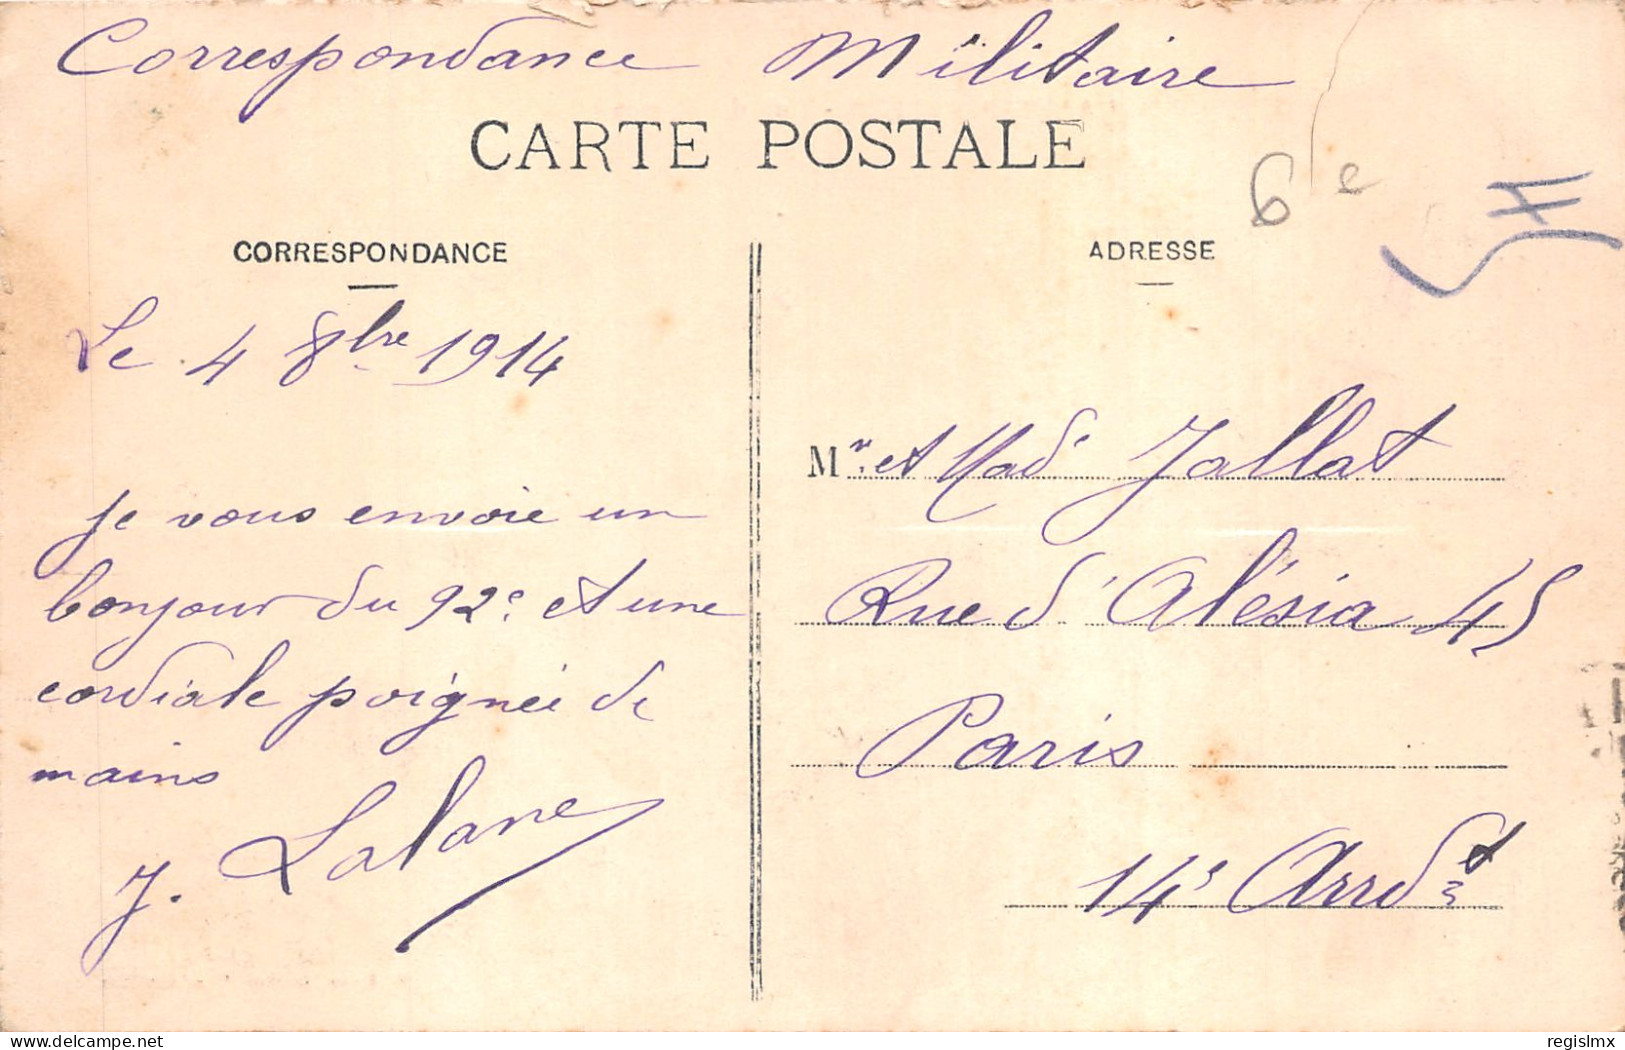 Correspondance Militaire
CARTE POSTALE
6e
CORRESPONDANCE
Le 4 8bre 1914
je vous envoie un
bonjour du 92e et une
cordiale poignée de
mains
J. Lalane
ADRESSE
Mr et Mad Jallat
Rue d'Alésia 45
Paris
14e Arrdt
delcampe.net
regislmx